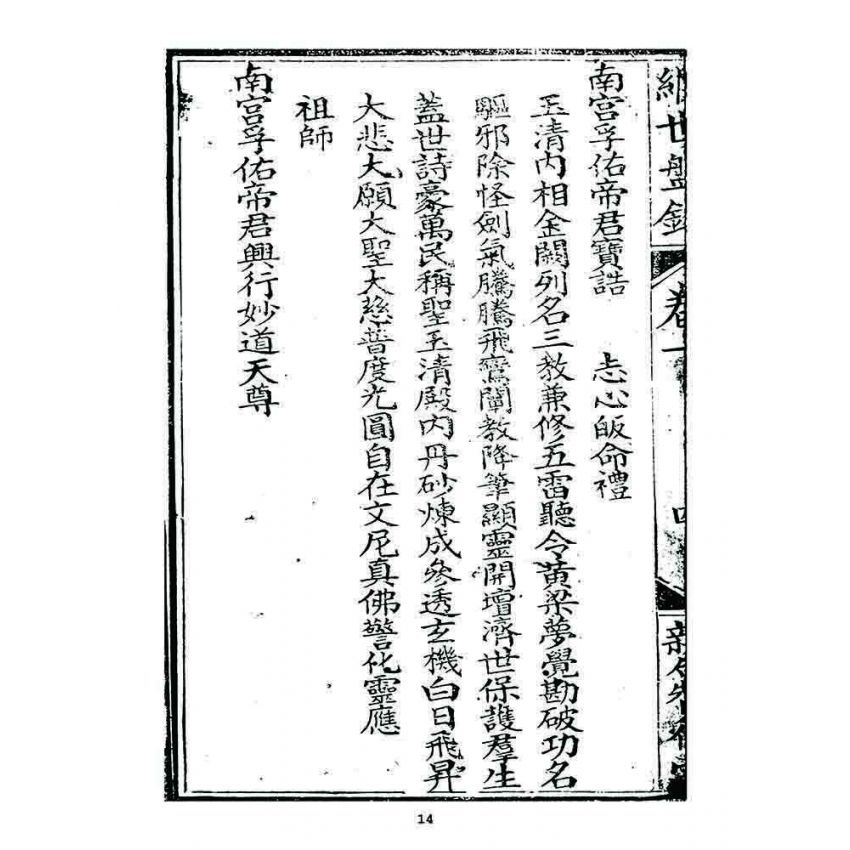 經世盤銘
卷一
四
南宮孚佑帝君寶誥 志心皈命禮
玉清內相金闕列名三教兼修五雷聽令黃粱夢覺勘破功名
驅邪除怪劍氣騰騰飛鸞闡教降筆顯靈開壇濟世保護羣生
蓋世詩豪萬民稱聖玉清殿內丹砂煉成參透玄機白日飛昇
大悲大願大聖大慈普度光圓自在文尼真佛警化靈應
祖師
南宮孚佑帝君興行妙道天尊
14